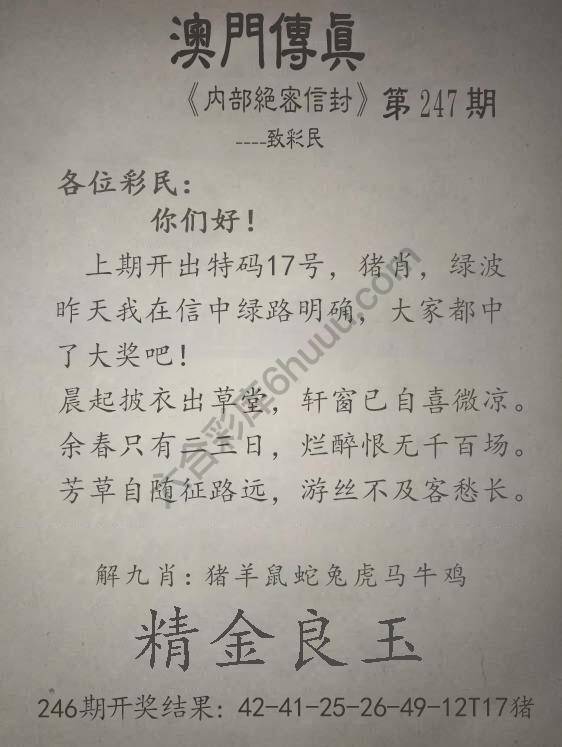 澳門傳眞
《内部絕密信封》第247期
----致彩民
各位彩民：
你们好！
上期开出特码17号，猪肖，绿波
昨天我在信中绿路明确，大家都中
了大奖吧！
晨起披衣出草堂，轩窗已自喜微凉。
余春只有二三日，烂醉恨无千百场。
芳草自随征路远，游丝不及客愁长。
六合彩库6huuu.com
解九肖：猪羊鼠蛇兔虎马牛鸡
精金良玉
246期开奖结果：42-41-25-26-49-12T17猪